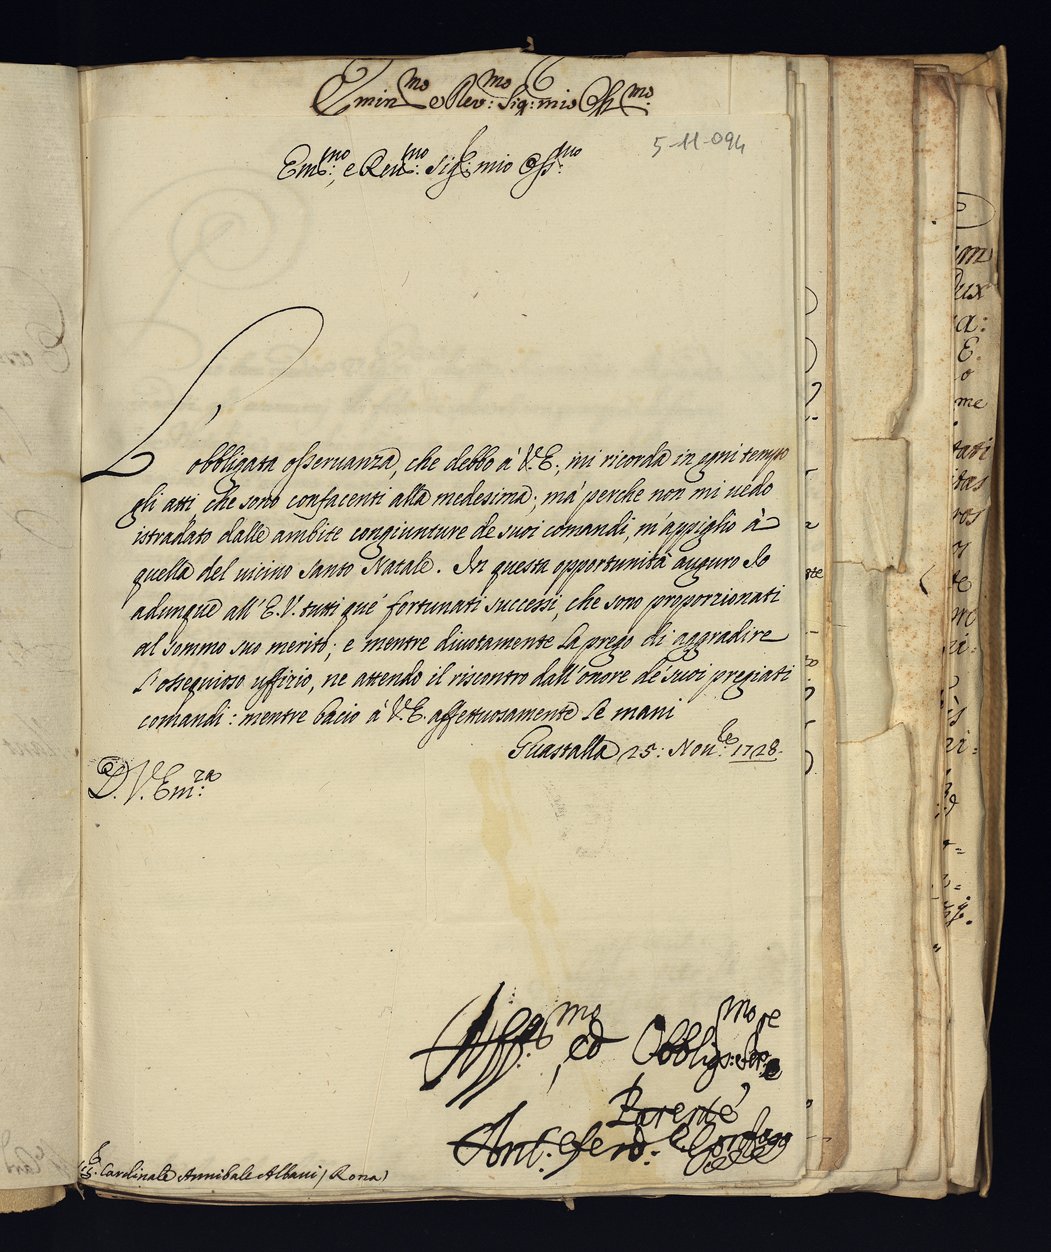 Emin.mo e Rev.mo Sig: mio Oss.mo
5-11-094
Em.mo, e Reu.mo Sig.r mio Oss.mo
L' obbligata osseruanza, che debbo à V.E., mi ricorda in ogni tempo
gli atti, che sono confacenti alla medesima; mà perche non mi uedo
istradato dalle ambite congiunture de suoi comandi, m'appiglio à
quella del uicino Santo Natale. In questa opportunità auguro Io
adunque all' E.V. tutti què fortunati successi, che sono proporzionati
al sommo suo merito; e mentre diuotamente La prego di aggradire
l'ossequioso uffizio, ne attendo il riscontro dall'onore de suoi pregiati
comandi: mentre bacio à V.E. affettuosamente le mani
Guastalla 25: Nou.le 1728.
D. V. Em.za
Aff.mo, ed Obblig.mo
Parente
Ant. Ferd.
Sig.r Cardinale Annibale Albani (Roma)